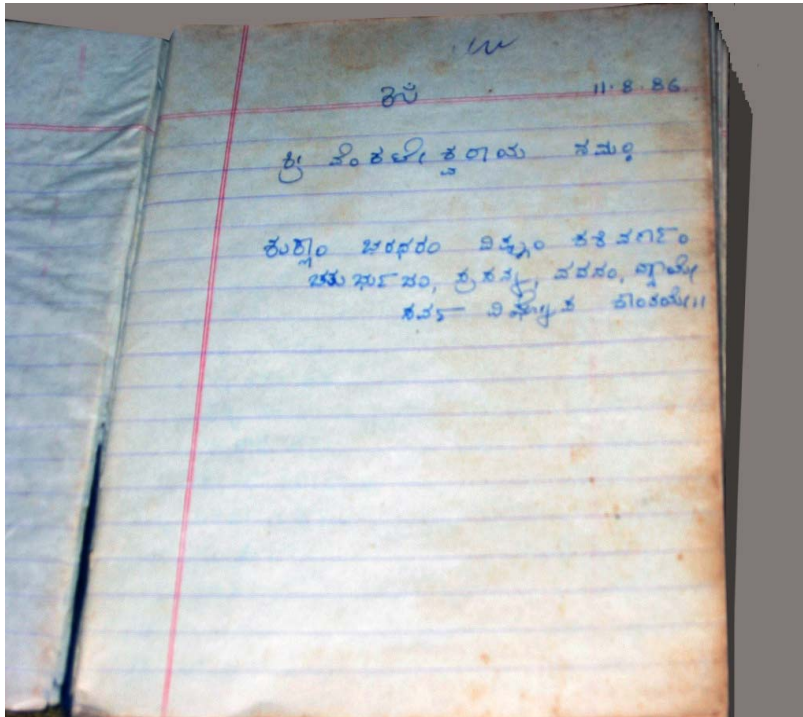 ಓಂ 11.8.86.
ಶ್ರೀ ವೆಂಕಟೇಶ್ವರಾಯ ನಮಃ
ಶುಕ್ಲಾಂ ಬರಧರಂ ವಿಷ್ಣುಂ ಶಶಿವರ್ಣಂ
ಚತುರ್ಭುಜಂ, ಪ್ರಸನ್ನ, ವದನಂ, ಧ್ಯಾಯೇ
ಸರ್ವ ವಿಘ್ನೋಪ ಶಾಂತಯೇ॥